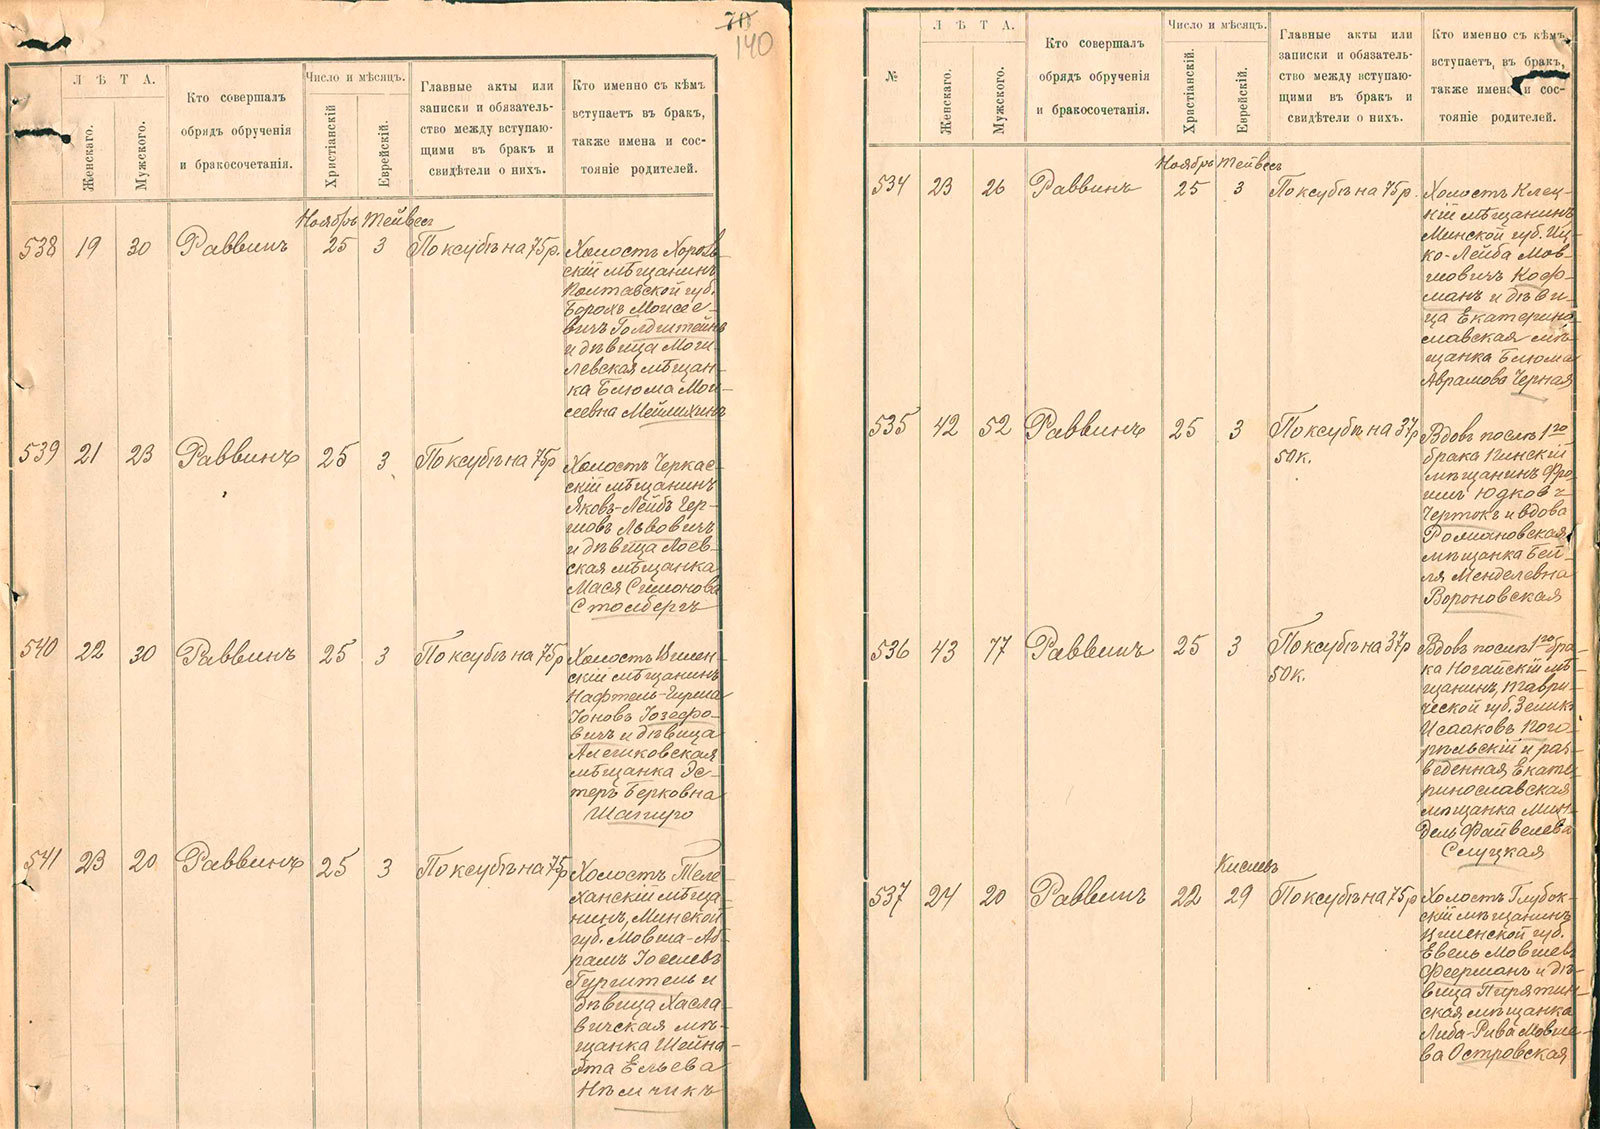 70
140
Л Ѣ Т А.
Женскаго.
Мужского.
Кто совершалъ
обрядъ обрученія
и бракосочетанія.
Число и мѣсяцъ.
Христіанскій
Еврейскій.
Главные акты или
записки и обязатель-
ство между вступаю-
щими въ бракъ и
свидѣтели о нихъ.
Кто именно съ кѣмъ
вступаетъ въ бракъ,
также имена и сос-
тояніе родителей.
Ноябрь Тейвесъ
538 19 30 Раввинъ 25 3 По ксубѣ на 75 р.
Холостъ Хороль-
скій мѣщанинъ
Полтавской губ.
Борохъ Моисее-
вичъ Голдштейнъ
и дѣвица Моги-
левская мѣщан-
ка Блюма Мои-
сеевна Мейлихинъ
539 21 23 Раввинъ 25 3 По ксубѣ на 75 р
Холостъ Черкас-
скій мѣщанинъ
Яковъ-Лейбъ Гер-
шовъ Львовичъ
и дѣвица Лоев-
ская мѣщанка
Мася Симонова
Столбергъ
540 22 30 Раввинъ 25 3 По ксубѣ на 75 р
Холостъ Вилен-
скій мѣщанинъ
Нафтель-Гирша
Іоновъ Іозефо-
вичъ и дѣвица
Алешковская
мѣщанка Эс-
теръ Берковна
Шапиро
541 23 20 Раввинъ 25 3 По ксубѣ на 75 р
Холостъ Теле-
ханскій мѣща-
нинъ, Минской
губ. Мовша-Аб-
рамъ Іоселевъ
Гургитель и
дѣвица Хасла-
вичская мѣ-
щанка Шейна-
Эта Ельева
Нѣмчикъ
№
Л Ѣ Т А.
Женскаго.
Мужского.
Кто совершалъ
обрядъ обрученія
и бракосочетанія.
Число и мѣсяцъ.
Христіанскій
Еврейскій.
Главные акты или
записки и обязатель-
ство между вступаю-
щими въ бракъ и
свидѣтели о нихъ.
Кто именно съ кѣмъ
вступаетъ, въ бракъ,
также имена и сос-
тояніе родителей.
Ноябрь Тейвесъ
534 23 26 Раввинъ 25 3 По ксубѣ на 75 р.
Холостъ Клец-
кій мѣщанинъ
Минской губ. Иц-
ко-Лейба Мов-
шовичъ Коф-
манъ и дѣви-
ца Екатерино-
славская мѣ-
щанка Блюма
Аврамова Черная
535 42 52 Раввинъ 25 3 По ксубѣ на 37 р
50 к.
Вдовъ послѣ 1го
брака Пинскій
мѣщанинъ Фро-
имъ Юдковъ
Чертокъ и вдова
Романовская
мѣщанка Бей-
ля Менделевна
Вороновская
536 43 77 Раввинъ 25 3 По ксубѣ на 37 р
50 к.
Вдовъ послѣ 1го бра-
ка Ногайскій мѣ-
щанинъ, Таври-
ческой губ. Зеликъ
Исааковъ Пого-
рѣльскій и раз-
веденная Екате-
ринославская
мѣщанка Мин-
дель Файвелева
Слуцкая
Кислевъ
537 24 20 Раввинъ 22 29 По ксубѣ на 75 р
Холостъ Глубок-
скій мѣщанинъ
Виленской губ.
Евель Мовшевъ
Феерманъ и дѣ-
вица Пирятин-
ская мѣщанка
Либа-Рива Мовше-
ва Островская